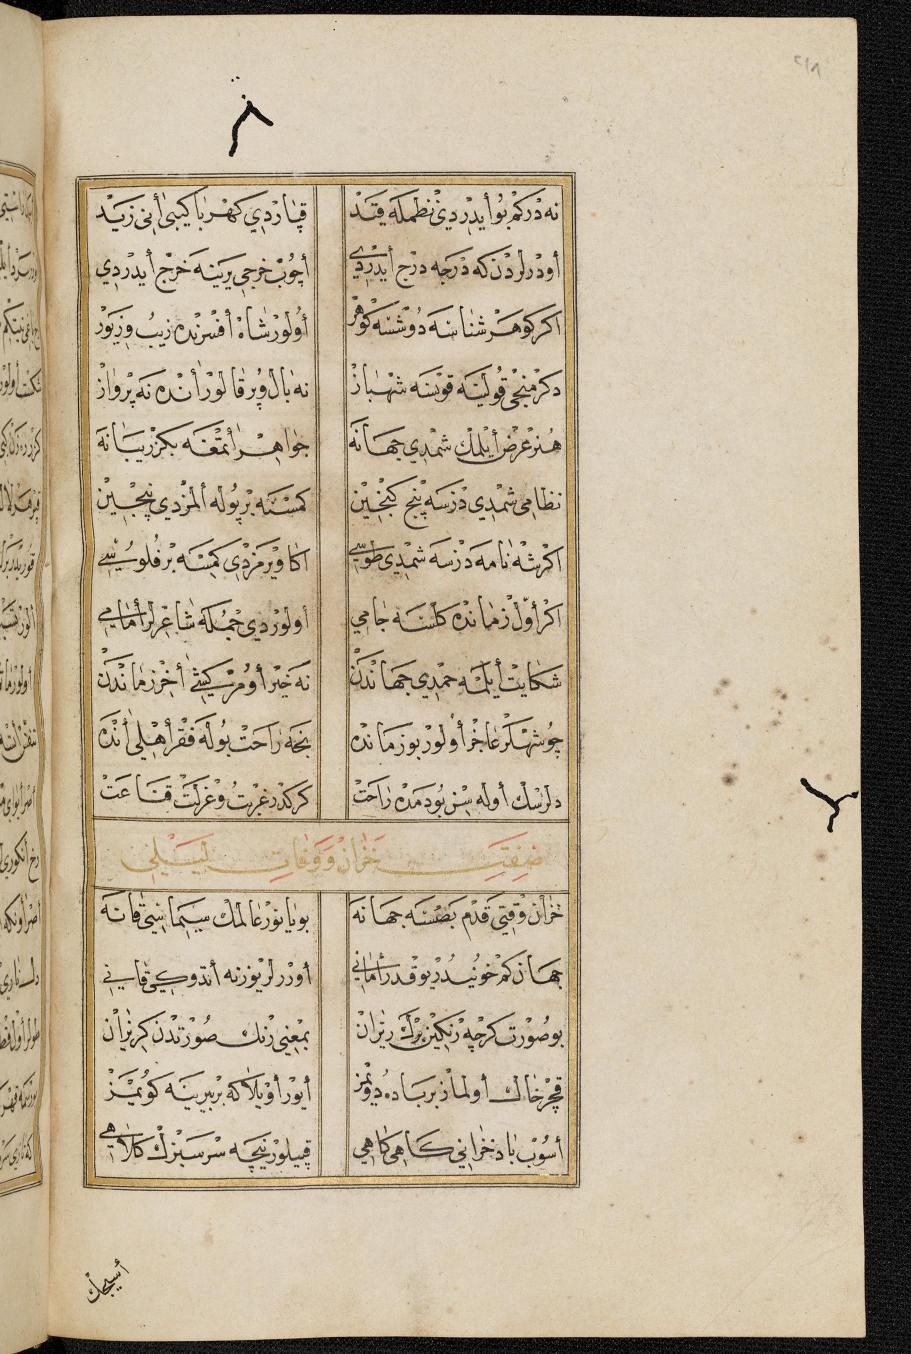 نه در كم بو ايدردي نظمله قند قپاردي كهربا كيبي أني زيد
أودرلردن كه درجه درج ايدردي أچوب خرجي يرينه خرج ايدردي
اكر كوهر شناسه دوشسه كوهر أولور شاه أفسرنده زيب وزيور
دكرمنجي قولينه قونسه شهباز نه بال وپر قالور أنده نه پرواز
هنر عرض أيلمك شمدي جهانه جواهر أتمغه بكزر يبانه
نظامي شمدي دزسه پنج كنجين كمسنه بر پوله ألمزدي پنجين
اكر شهنامه دزسه شمدي طوسي اكا ويرمزدي كمسه بر فلوسي
اكر أول زمانده كلسه جامي أولوردي جمله شاعرلر أمامي
شكايت أيلمه حمدي جهاندن نه خير أومر كيشي أخر زماندن
چو شهلر عاجز أولور بو زمانده نجه راحت بوله فقر أهلي أنده
دلرسك أوله سن بودمده راحت كركدر غربت وعزلت قناعت
صفت خزان ووفات ليلي
خزان وقتي قدم بصسه جهانه بويانور عالمك سيماسي قانه
جهان كم خونيدر يوقدر أماني أورر لر يوزنه أندوكي قاني
بو صورت كرچه رنكين برك ريزان بمعني رنك صورتدن كريزان
قچر خاك أولماز برباد ديونمز أيور أويلا كه بربيرينه كويمز
أسوب باد خزاني كاهي كاهي قپيلور نيچه سرسبزك كلاهي
أسيجك